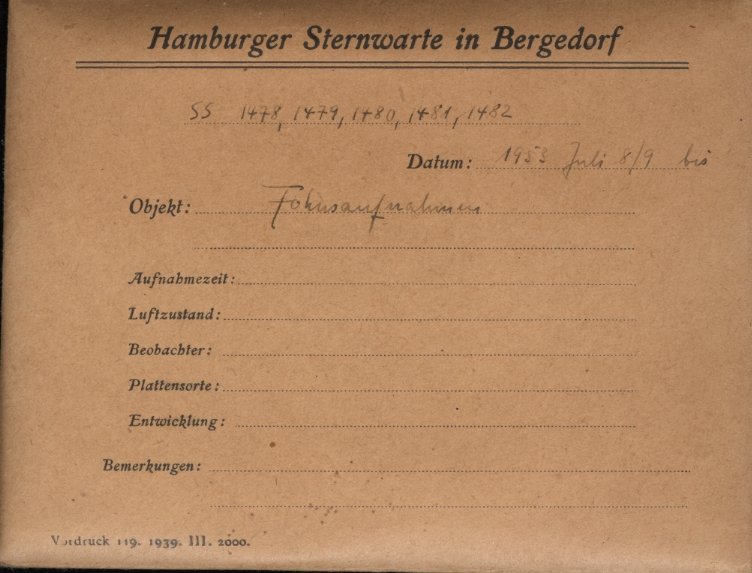 Hamburger Sternwarte in Bergedorf
SS 1478, 1479, 1480, 1481, 1482
Datum: 1953 Juli 8/9 bis
Objekt: Fokusaufnahmen
Aufnahmezeit:
Luftzustand:
Beobachter:
Plattensorte:
Entwicklung:
Bemerkungen:
Vordruck 119. 1939. III. 2000.